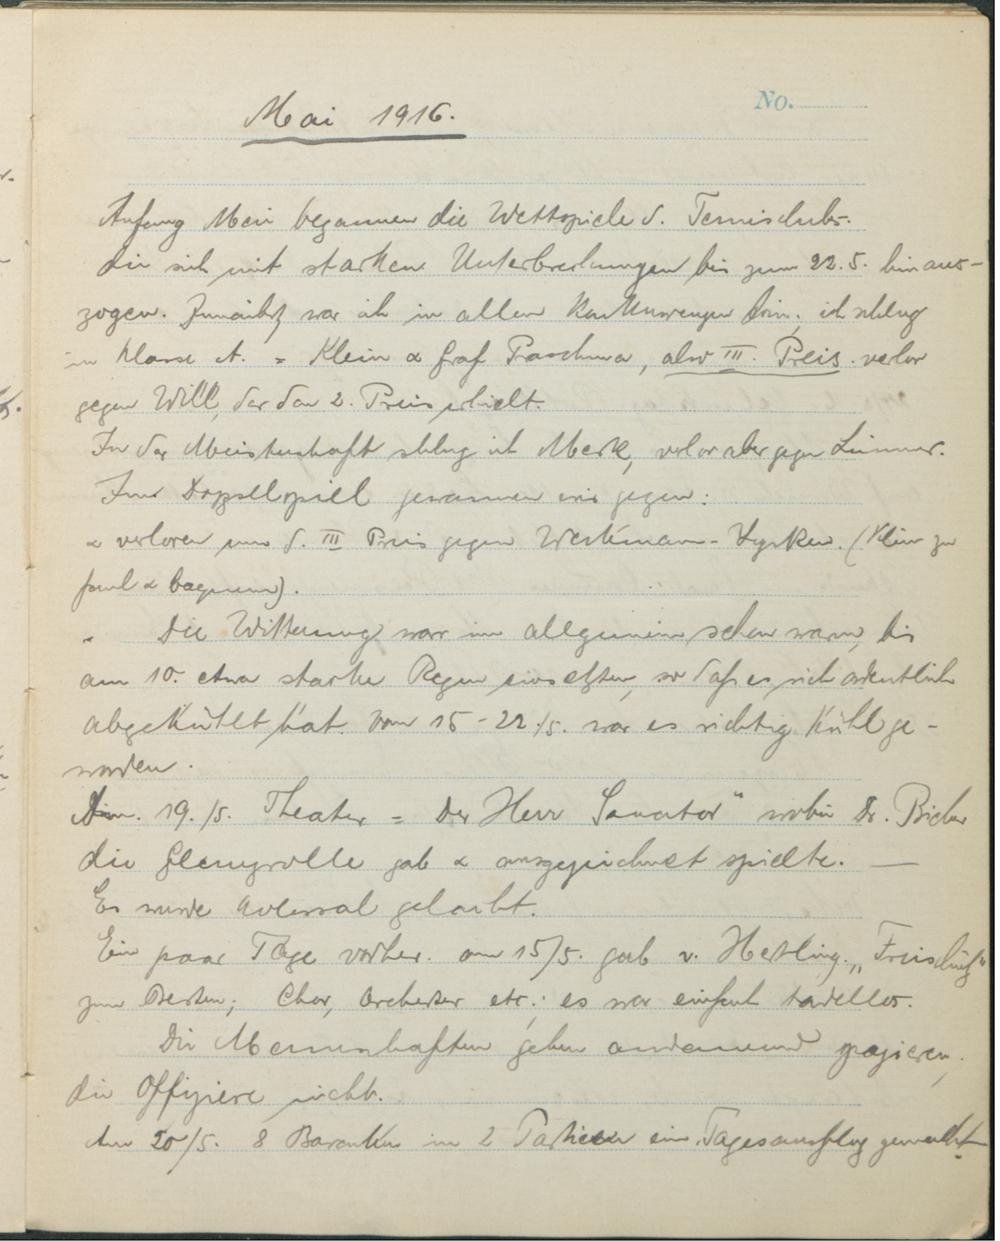 No.
Mai 1916.
Anfang Mai begannen die Wettspiele d. Tennisclubs.
die sich mit starken Unterbrechungen bis zum 22.5. hinaus-
zogen. Zunächst war ich in allen Konkurrenzen drin. ich schlug
in Klasse A. = Klein & Graf Praschma, also III. Preis. verlor
gegen Will, der den 2. Preis erhielt.
In der Meisterschaft schlug ich Merk, verlor aber gegen
Im Doppelspiel gewannen wir gegen:
& verloren um d. III Preis gegen (Klein zu
faul & bequem).
Die Witterung war im allgemeinen schon warm, bis
am 10. etwa starke Regen einsetzten, so daß es sich ordentlich
abgekühlt hat. Vom 15-22./5. war es richtig kühl ge-
worden.
19./5. Theater = Der Herr Senator" wobei Dr.
die Glanzrolle gab & ausgezeichnet spielte. —
Es wurde kolossal gelacht.
Ein paar Tage vorher. am 15/5. gab v. Hertling. „Freischütz"
zum Besten; Chor, Orchester etc.: es war einfach tadellos.
Die Mannschaften gehen andauernd spazieren,
die Offiziere nicht.
Am 20/5. 8 Baracken in 2 Partieen ein Tagesausflug gemacht.